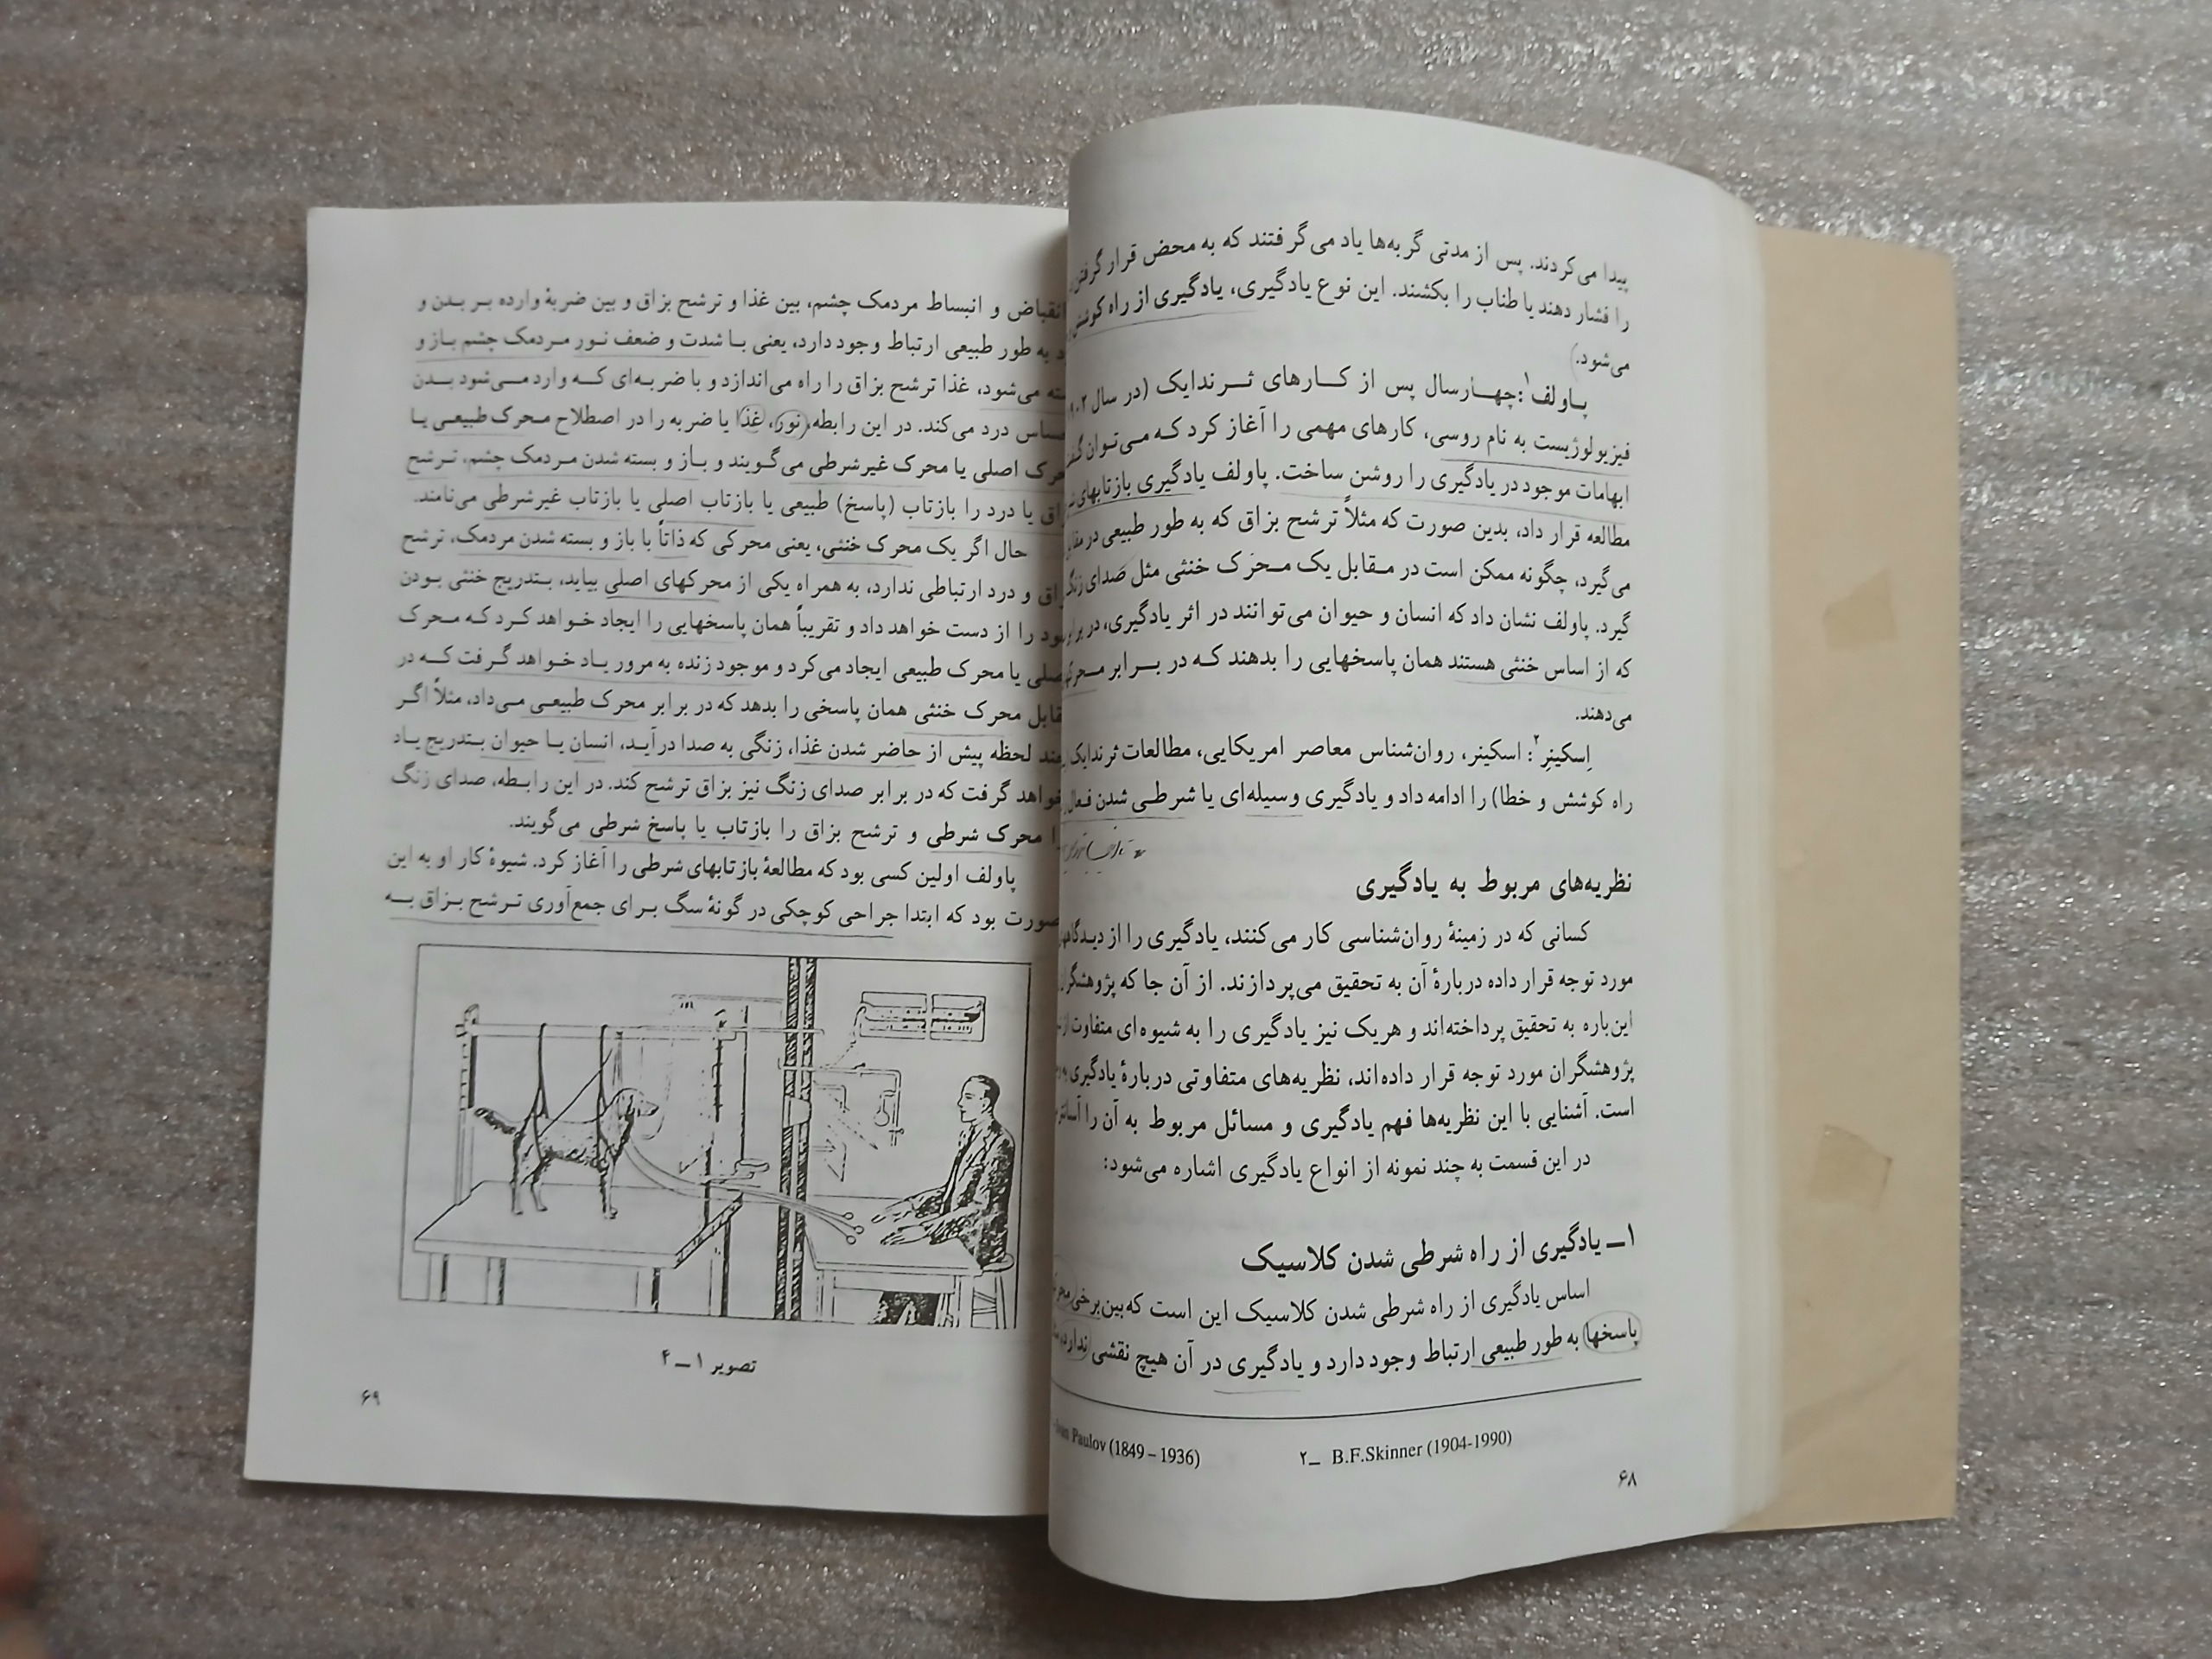 پیدا می‌کردند. پس از مدتی گربه‌ها یاد می‌گرفتند که به محض قرار گرفتن
را فشار دهند یا طناب را بکشند. این نوع یادگیری، یادگیری از راه کوشش
می‌شود.)
پاولف۱: چهارسال پس از کارهای ثرندایک (در سال
فیزیولوژیست به نام روسی، کارهای مهمی را آغاز کرد که می‌توان
ابهامات موجود در یادگیری را روشن ساخت. پاولف یادگیری بازتابهای
مطالعه قرار داد، بدین صورت که مثلاً ترشح بزاق که به طور طبیعی در
می‌گیرد، چگونه ممکن است در مقابل یک محرک خنثی مثل صدای زنگ
گیرد. پاولف نشان داد که انسان و حیوان می‌توانند در اثر یادگیری، در برابر
که از اساس خنثی هستند همان پاسخهایی را بدهند که در برابر
می‌دهند.
اِسکینِر۲: اسکینر، روان‌شناس معاصر امریکایی، مطالعات ثرندایک
راه کوشش و خطا) را ادامه داد و یادگیری وسیله‌ای یا شرطی شدن
نظریه‌های مربوط به یادگیری
کسانی که در زمینهٔ روان‌شناسی کار می‌کنند، یادگیری را از
مورد توجه قرار داده دربارهٔ آن به تحقیق می‌پردازند. از آن جا که
این‌باره به تحقیق پرداخته‌اند و هریک نیز یادگیری را به شیوه‌ای متفاوت
پژوهشگران مورد توجه قرار داده‌اند، نظریه‌های متفاوتی دربارهٔ یادگیری
است. آشنایی با این نظریه‌ها فهم یادگیری و مسائل مربوط به آن را
در این قسمت به چند نمونه از انواع یادگیری اشاره می‌شود:
۱ــ یادگیری از راه شرطی شدن کلاسیک
اساس یادگیری از راه شرطی شدن کلاسیک این است که بین برخی
پاسخها به طور طبیعی ارتباط وجود دارد و یادگیری در آن هیچ نقشی ندارد
Paulov (1849 – 1936)
۲ــ B.F.Skinner (1904-1990)
۶۸
انقباض و انبساط مردمک چشم، بین غذا و ترشح بزاق و بین ضربهٔ وارده بر بدن و
به طور طبیعی ارتباط وجود دارد، یعنی با شدت و ضعف نور مردمک چشم باز و
می‌شود، غذا ترشح بزاق را راه می‌اندازد و با ضربه‌ای که وارد می‌شود بدن
درد می‌کند. در این رابطه، نور، غذا یا ضربه را در اصطلاح محرک طبیعی یا
اصلی یا محرک غیرشرطی می‌گویند و باز و بسته شدن مردمک چشم، ترشح
یا درد را بازتاب (پاسخ) طبیعی یا بازتاب اصلی یا بازتاب غیرشرطی می‌نامند.
حال اگر یک محرک خنثی، یعنی محرکی که ذاتاً با باز و بسته شدن مردمک، ترشح
و درد ارتباطی ندارد، به همراه یکی از محرکهای اصلی بیاید، بتدریج خنثی بودن
را از دست خواهد داد و تقریباً همان پاسخهایی را ایجاد خواهد کرد که محرک
یا محرک طبیعی ایجاد می‌کرد و موجود زنده به مرور یاد خواهد گرفت که در
محرک خنثی همان پاسخی را بدهد که در برابر محرک طبیعی می‌داد، مثلاً اگر
لحظه پیش از حاضر شدن غذا، زنگی به صدا درآید، انسان یا حیوان بتدریج یاد
خواهد گرفت که در برابر صدای زنگ نیز بزاق ترشح کند. در این رابطه، صدای زنگ
محرک شرطی و ترشح بزاق را بازتاب یا پاسخ شرطی می‌گویند.
پاولف اولین کسی بود که مطالعهٔ بازتابهای شرطی را آغاز کرد. شیوهٔ کار او به این
صورت بود که ابتدا جراحی کوچکی در گونهٔ سگ برای جمع‌آوری ترشح بزاق به
تصویر ۱ــ۴
۶۹